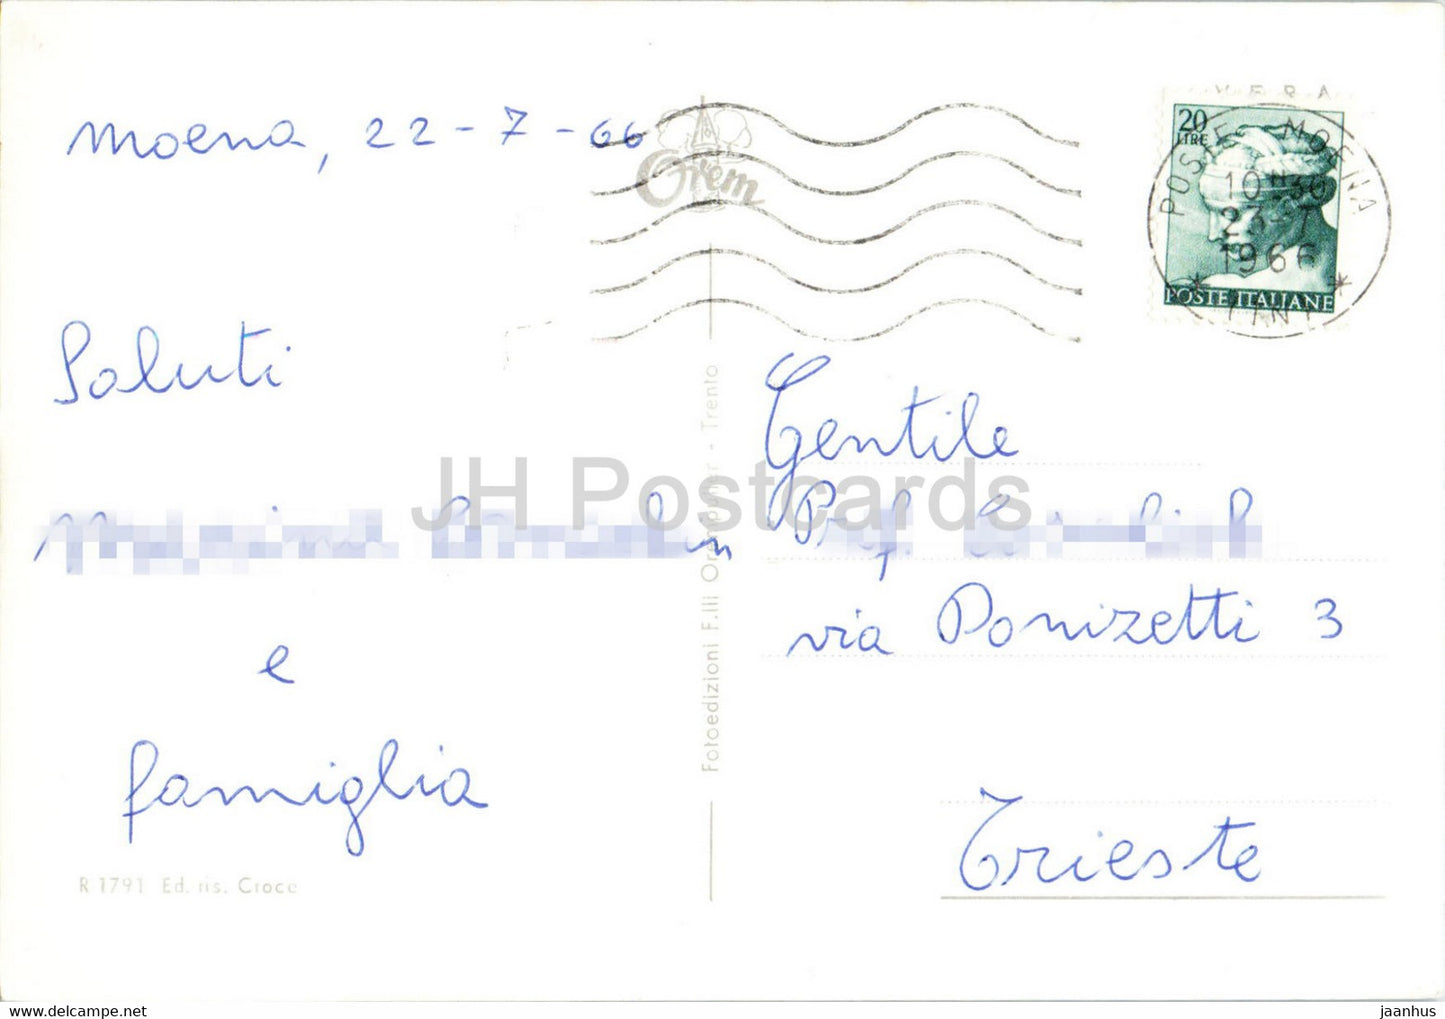 Moena, 22-7-66
Saluti
e
famiglia
R 1791 Ed. ris. Croce
Orem
Fotoedizioni F.lli - Trento
VERA
20
LIRE
POSTE ITALIANE
POSTE MOENA
10 30
23-7
1966
Gentile
Prof.
via Donizetti 3
Trieste
JH Postcards
jaanhus
www.delcampe.net